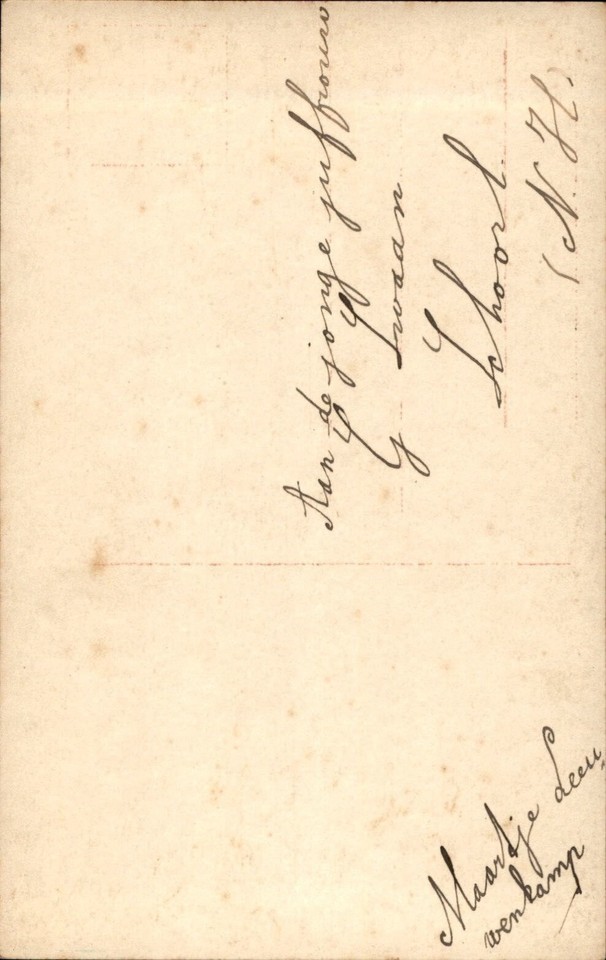 Aan de jonge juffrouw
G Swaan
Schoorl
(N. H.
Maartje Leeu,
wenkamp